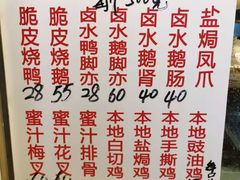 脆皮烧鸭 28
脆皮烧鹅 55
卤水鸭脚亦 28
卤水鹅脚亦 60
卤水鹅肾 40
卤水鹅肠 40
盐焗凤爪
蜜汁梅叉
蜜汁花叉
蜜汁排骨
本地白切鸡
本地盐焗鸡
本地手撕鸡
本地豉油鸡